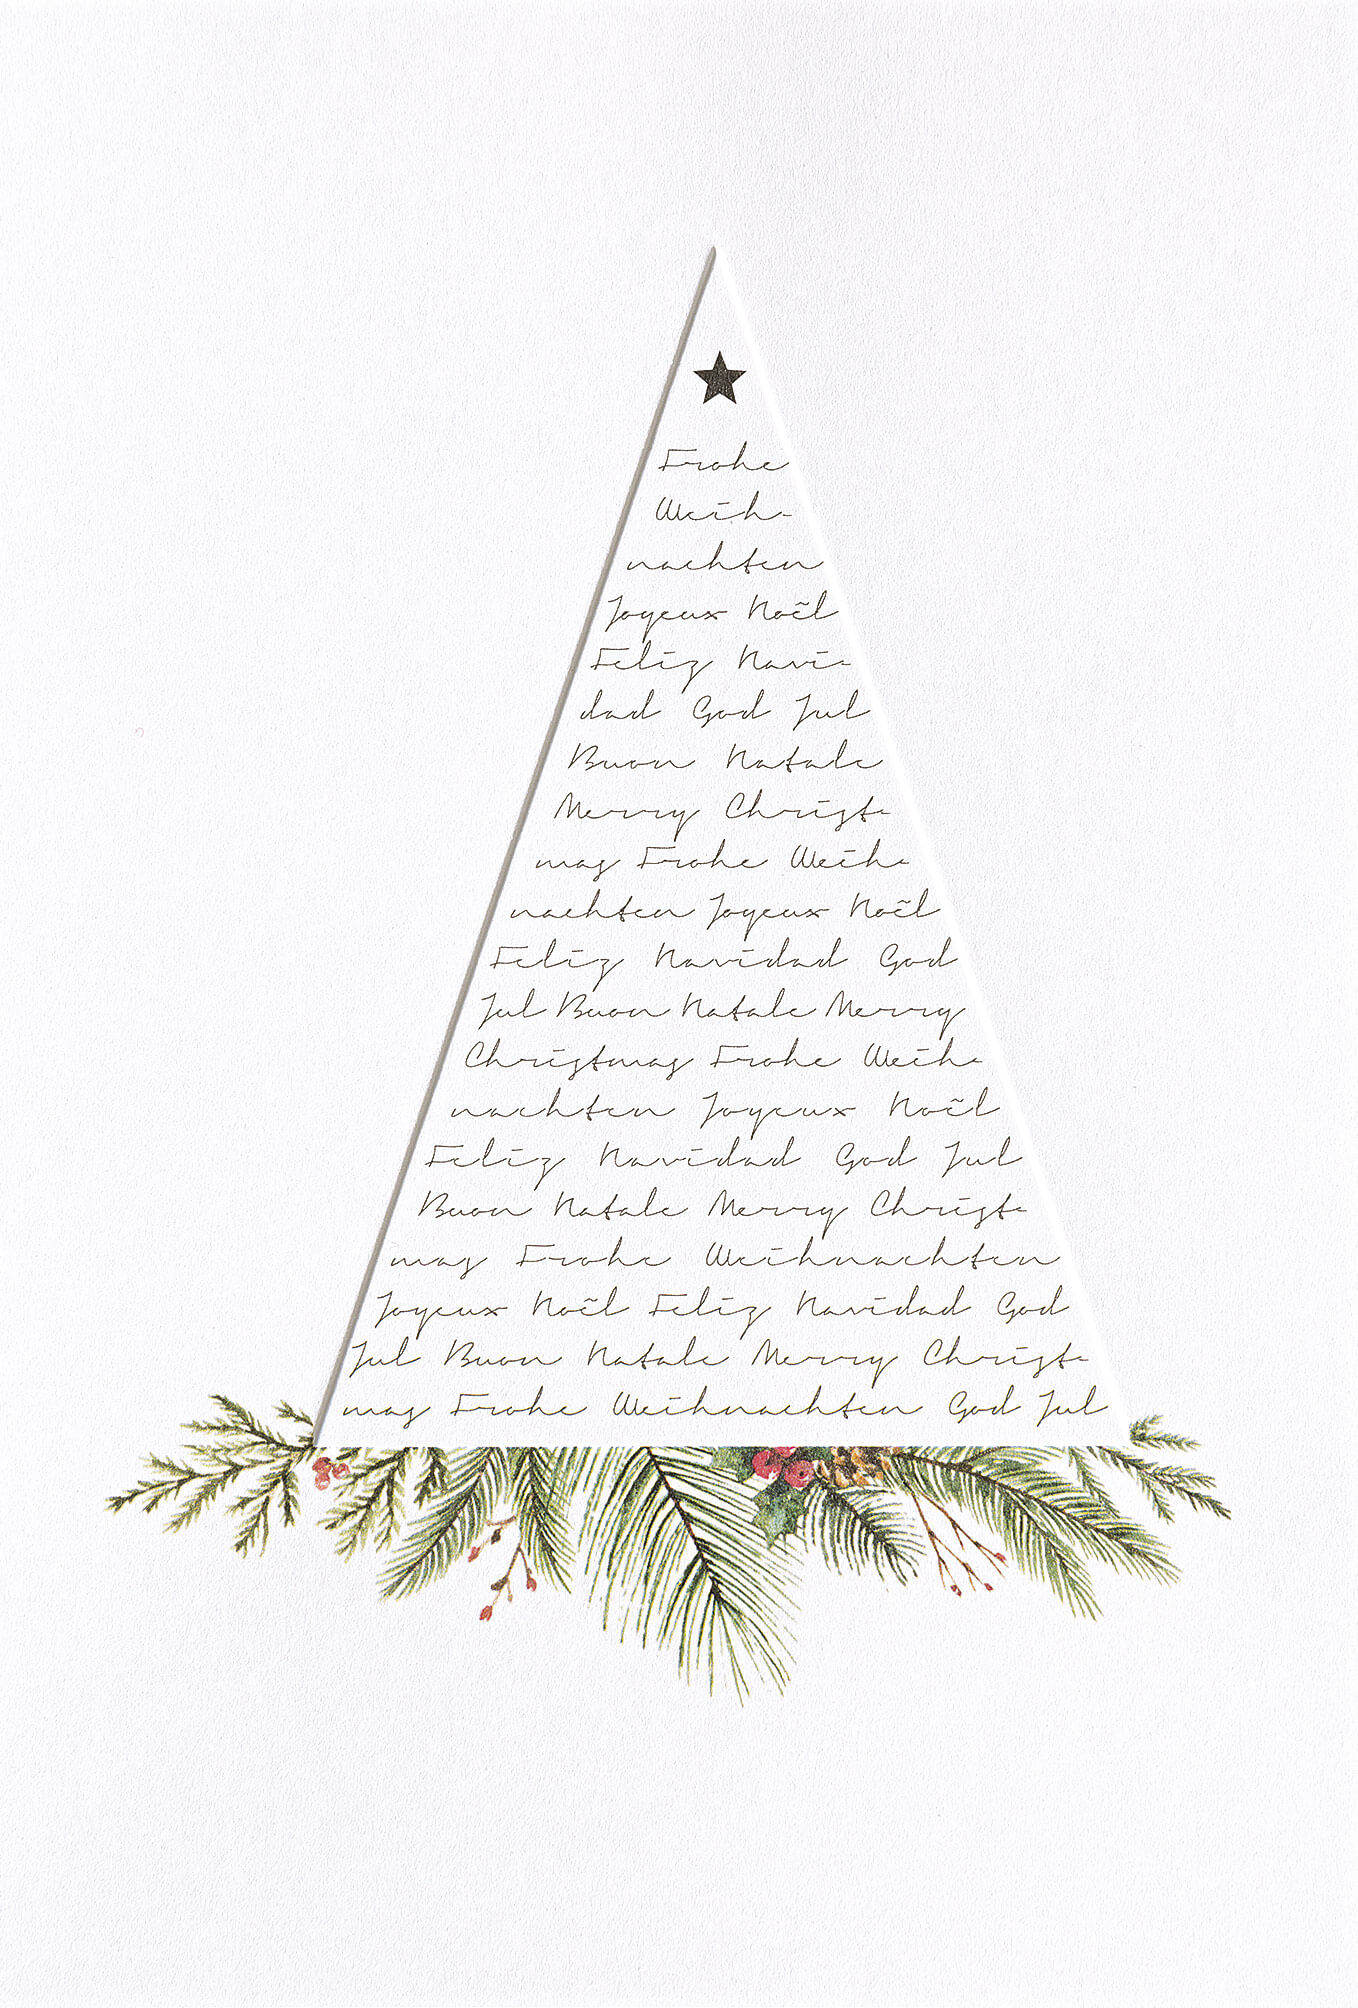 Frohe
Weih-
nachten
Joyeux Noël
Feliz Navi-
dad God Jul
Buon Natale
Merry Christ-
mas Frohe Weih-
nachten Joyeux Noël
Feliz Navidad God
Jul Buon Natale Merry
Christmas Frohe Weih-
nachten Joyeux Noël
Feliz Navidad God Jul
Buon Natale Merry Christ-
mas Frohe Weihnachten
Joyeux Noël Feliz Navidad God
Jul Buon Natale Merry Christ-
mas Frohe Weihnachten God Jul